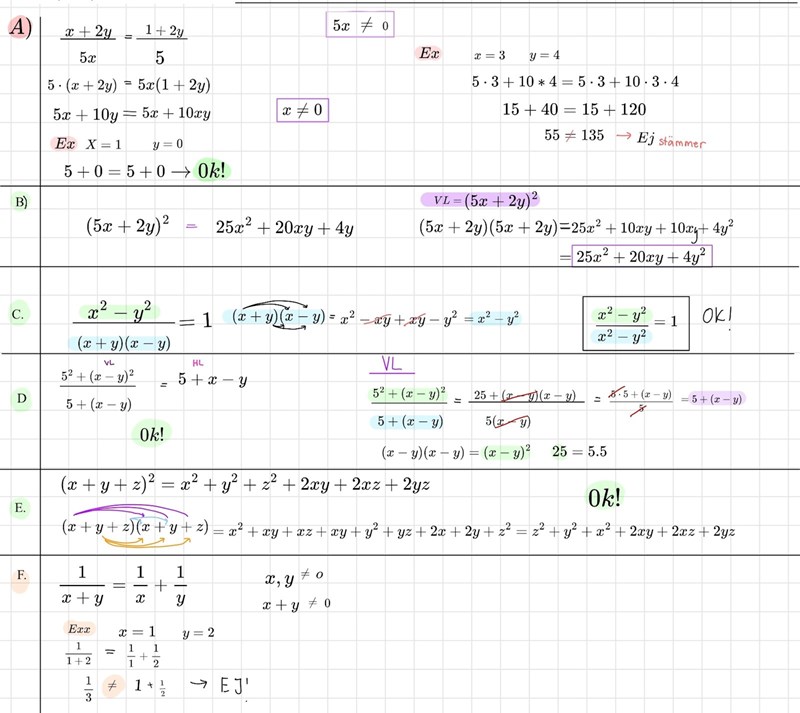 A)
x + 2y / 5x = 1 + 2y / 5
5x ≠ 0
5 · (x + 2y) = 5x(1 + 2y)
5x + 10y = 5x + 10xy
x ≠ 0
Ex X = 1 y = 0
5 + 0 = 5 + 0 → Ok!
Ex x = 3 y = 4
5 · 3 + 10 * 4 = 5 · 3 + 10 · 3 · 4
15 + 40 = 15 + 120
55 ≠ 135 → Ej stämmer
B)
(5x + 2y)² = 25x² + 20xy + 4y
VL = (5x + 2y)²
(5x + 2y)(5x + 2y) = 25x² + 10xy + 10xy + 4y²
= 25x² + 20xy + 4y²
C.
x² − y² / (x + y)(x − y) = 1
(x + y)(x − y) = x² − xy + xy − y² = x² − y²
x² − y² / x² − y² = 1 OK!
D
VL HL
5² + (x − y)² / 5 + (x − y) = 5 + x − y
Ok!
VL
5² + (x − y)² / 5 + (x − y) = 25 + (x − y)(x − y) / 5(x − y) = 5 · 5 + (x − y) / 5 = 5 + (x − y)
(x − y)(x − y) = (x − y)² 25 = 5.5
E.
(x + y + z)² = x² + y² + z² + 2xy + 2xz + 2yz
Ok!
(x + y + z)(x + y + z) = x² + xy + xz + xy + y² + yz + 2x + 2y + z² = z² + y² + x² + 2xy + 2xz + 2yz
F.
1 / x + y = 1 / x + 1 / y
x, y ≠ o
x + y ≠ 0
Exx x = 1 y = 2
1 / 1 + 2 = 1 / 1 + 1 / 2
1 / 3 ≠ 1 + 1 / 2 → EJ!